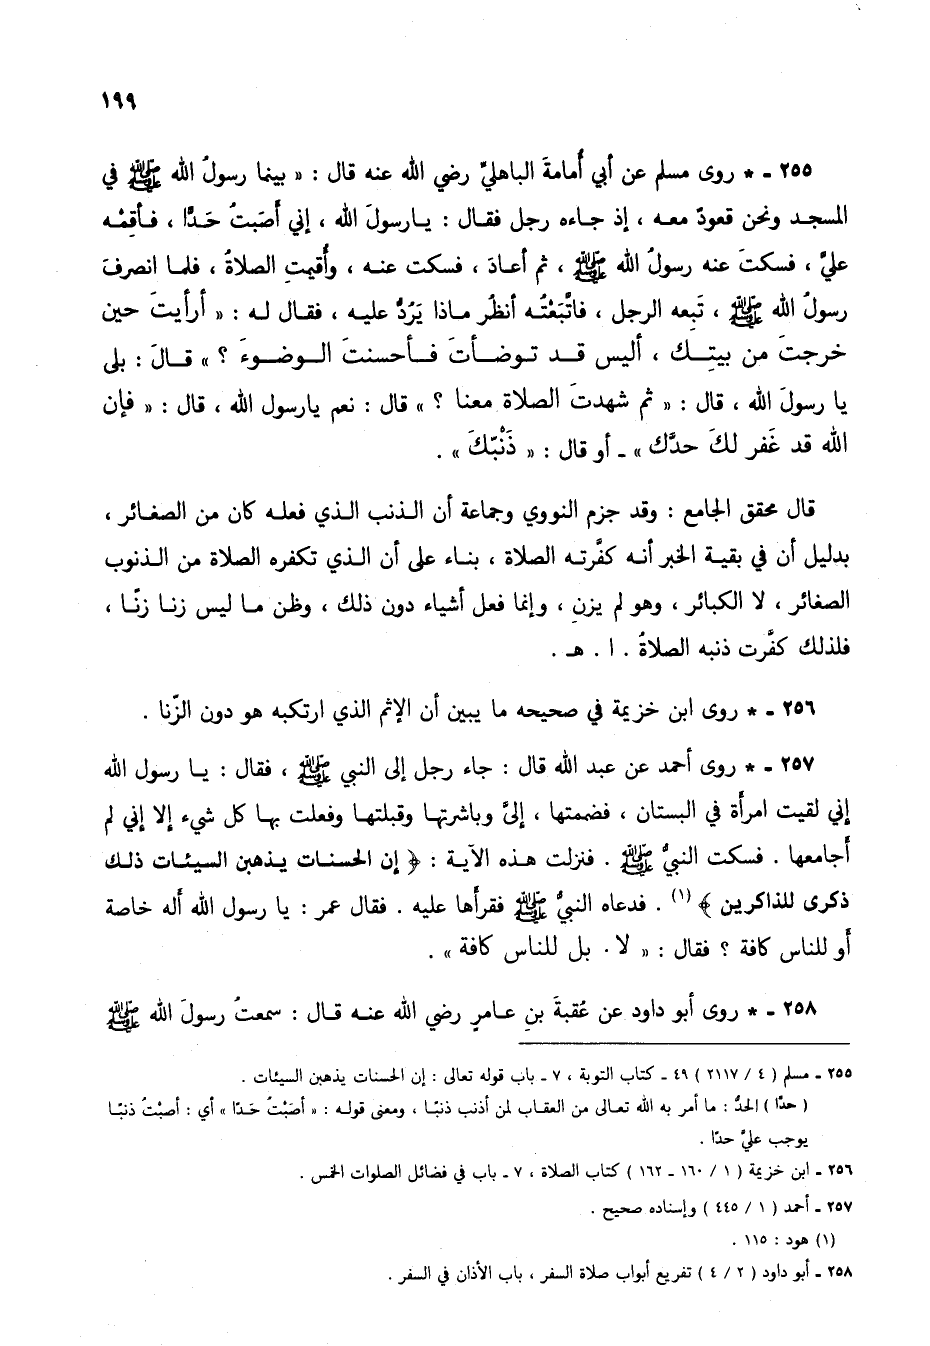 ١٩٩
٢٥٥ ـ * روى مسلم عن أبي أُمامةَ الباهليِّ رضي الله عنه قال : « بينما رسولُ الله ﷺ في
المسجد ونحن قعودٌ معه ، إذ جاءه رجل فقال : يارسولَ الله ، إني أَصَبتُ حَدًّا ، فأقِمْه
عليَّ ، فسكتَ عنه رسولُ الله ﷺ ، ثم أعادَ ، فسكت عنه ، وأُقيمتِ الصلاةُ ، فلما انصرفَ
رسولُ الله ﷺ ، تَبعه الرجل ، فاتَّبَعْتُه أنظرُ ماذا يَرُدُّ عليه ، فقال له : « أرأيتَ حين
خرجتَ من بيتك ، أليس قد توضأتَ فأحسنتَ الوضوءَ ؟ » قالَ : بلى
يا رسولَ الله ، قال : « ثم شهدتَ الصلاة معنا ؟ » قال : نعم يارسول الله ، قال : « فإن
الله قد غَفر لكَ حدَّك » ـ أو قال : « ذَنْبَكَ » .
قال محقق الجامع : وقد جزم النووي وجماعة أن الذنب الذي فعله كان من الصغائر ،
بدليل أن في بقية الخبر أنه كفَّرته الصلاة ، بناء على أن الذي تكفره الصلاة من الذنوب
الصغائر ، لا الكبائر ، وهو لم يزنِ ، وإنما فعل أشياء دون ذلك ، وظن ما ليس زنا زنًا ،
فلذلك كفَّرت ذنبه الصلاةُ . ا . هـ .
٢٥٦ ـ * روى ابن خزيمة في صحيحه ما يبين أن الإثم الذي ارتكبه هو دون الزّنا .
٢٥٧ ـ * روى أحمد عن عبد الله قال : جاء رجل إلى النبي ﷺ ، فقال : يا رسول الله
إني لقيت امرأة في البستان ، فضممتها ، إليَّ وباشرتها وقبلتها وفعلت بها كل شيء إلا إني لم
أجامعها . فسكت النبيُّ ﷺ . فنزلت هذه الآية : ﴿ إن الحسنات يذهبن السيئات ذلك
ذكرى للذاكرين ﴾ (١) . فدعاه النبيُّ ﷺ فقرأها عليه . فقال عمر : يا رسول الله أله خاصة
أو للناس كافة ؟ فقال : « لا . بل للناس كافة » .
٢٥٨ ـ * روى أبو داود عن عُقبةَ بنِ عامرٍ رضي الله عنه قال : سمعتُ رسولَ الله ﷺ
٢٥٥ ـ مسلم ( ٤ / ٢١١٧ ) ٤٩ ـ كتاب التوبة ، ٧ ـ باب قوله تعالى : إن الحسنات يذهبن السيئات .
( حدًا ) الحدُّ : ما أمر به الله تعالى من العقاب لمن أذنب ذنبًا ، ومعنى قوله : « أصَبْتُ حَدًا » أي : أصبْتُ ذنبًا
يوجب عليَّ حدًا .
٢٥٦ ـ ابن خزيمة ( ١ / ١٦٠ ـ ١٦٢ ) كتاب الصلاة ، ٧ ـ باب في فضائل الصلوات الخمس .
٢٥٧ ـ أحمد ( ١ / ٤٤٥ ) وإسناده صحيح .
(١) هود : ١١٥ .
٢٥٨ ـ أبو داود ( ٢ / ٤ ) تفريع أبواب صلاة السفر ، باب الأذان في السفر .